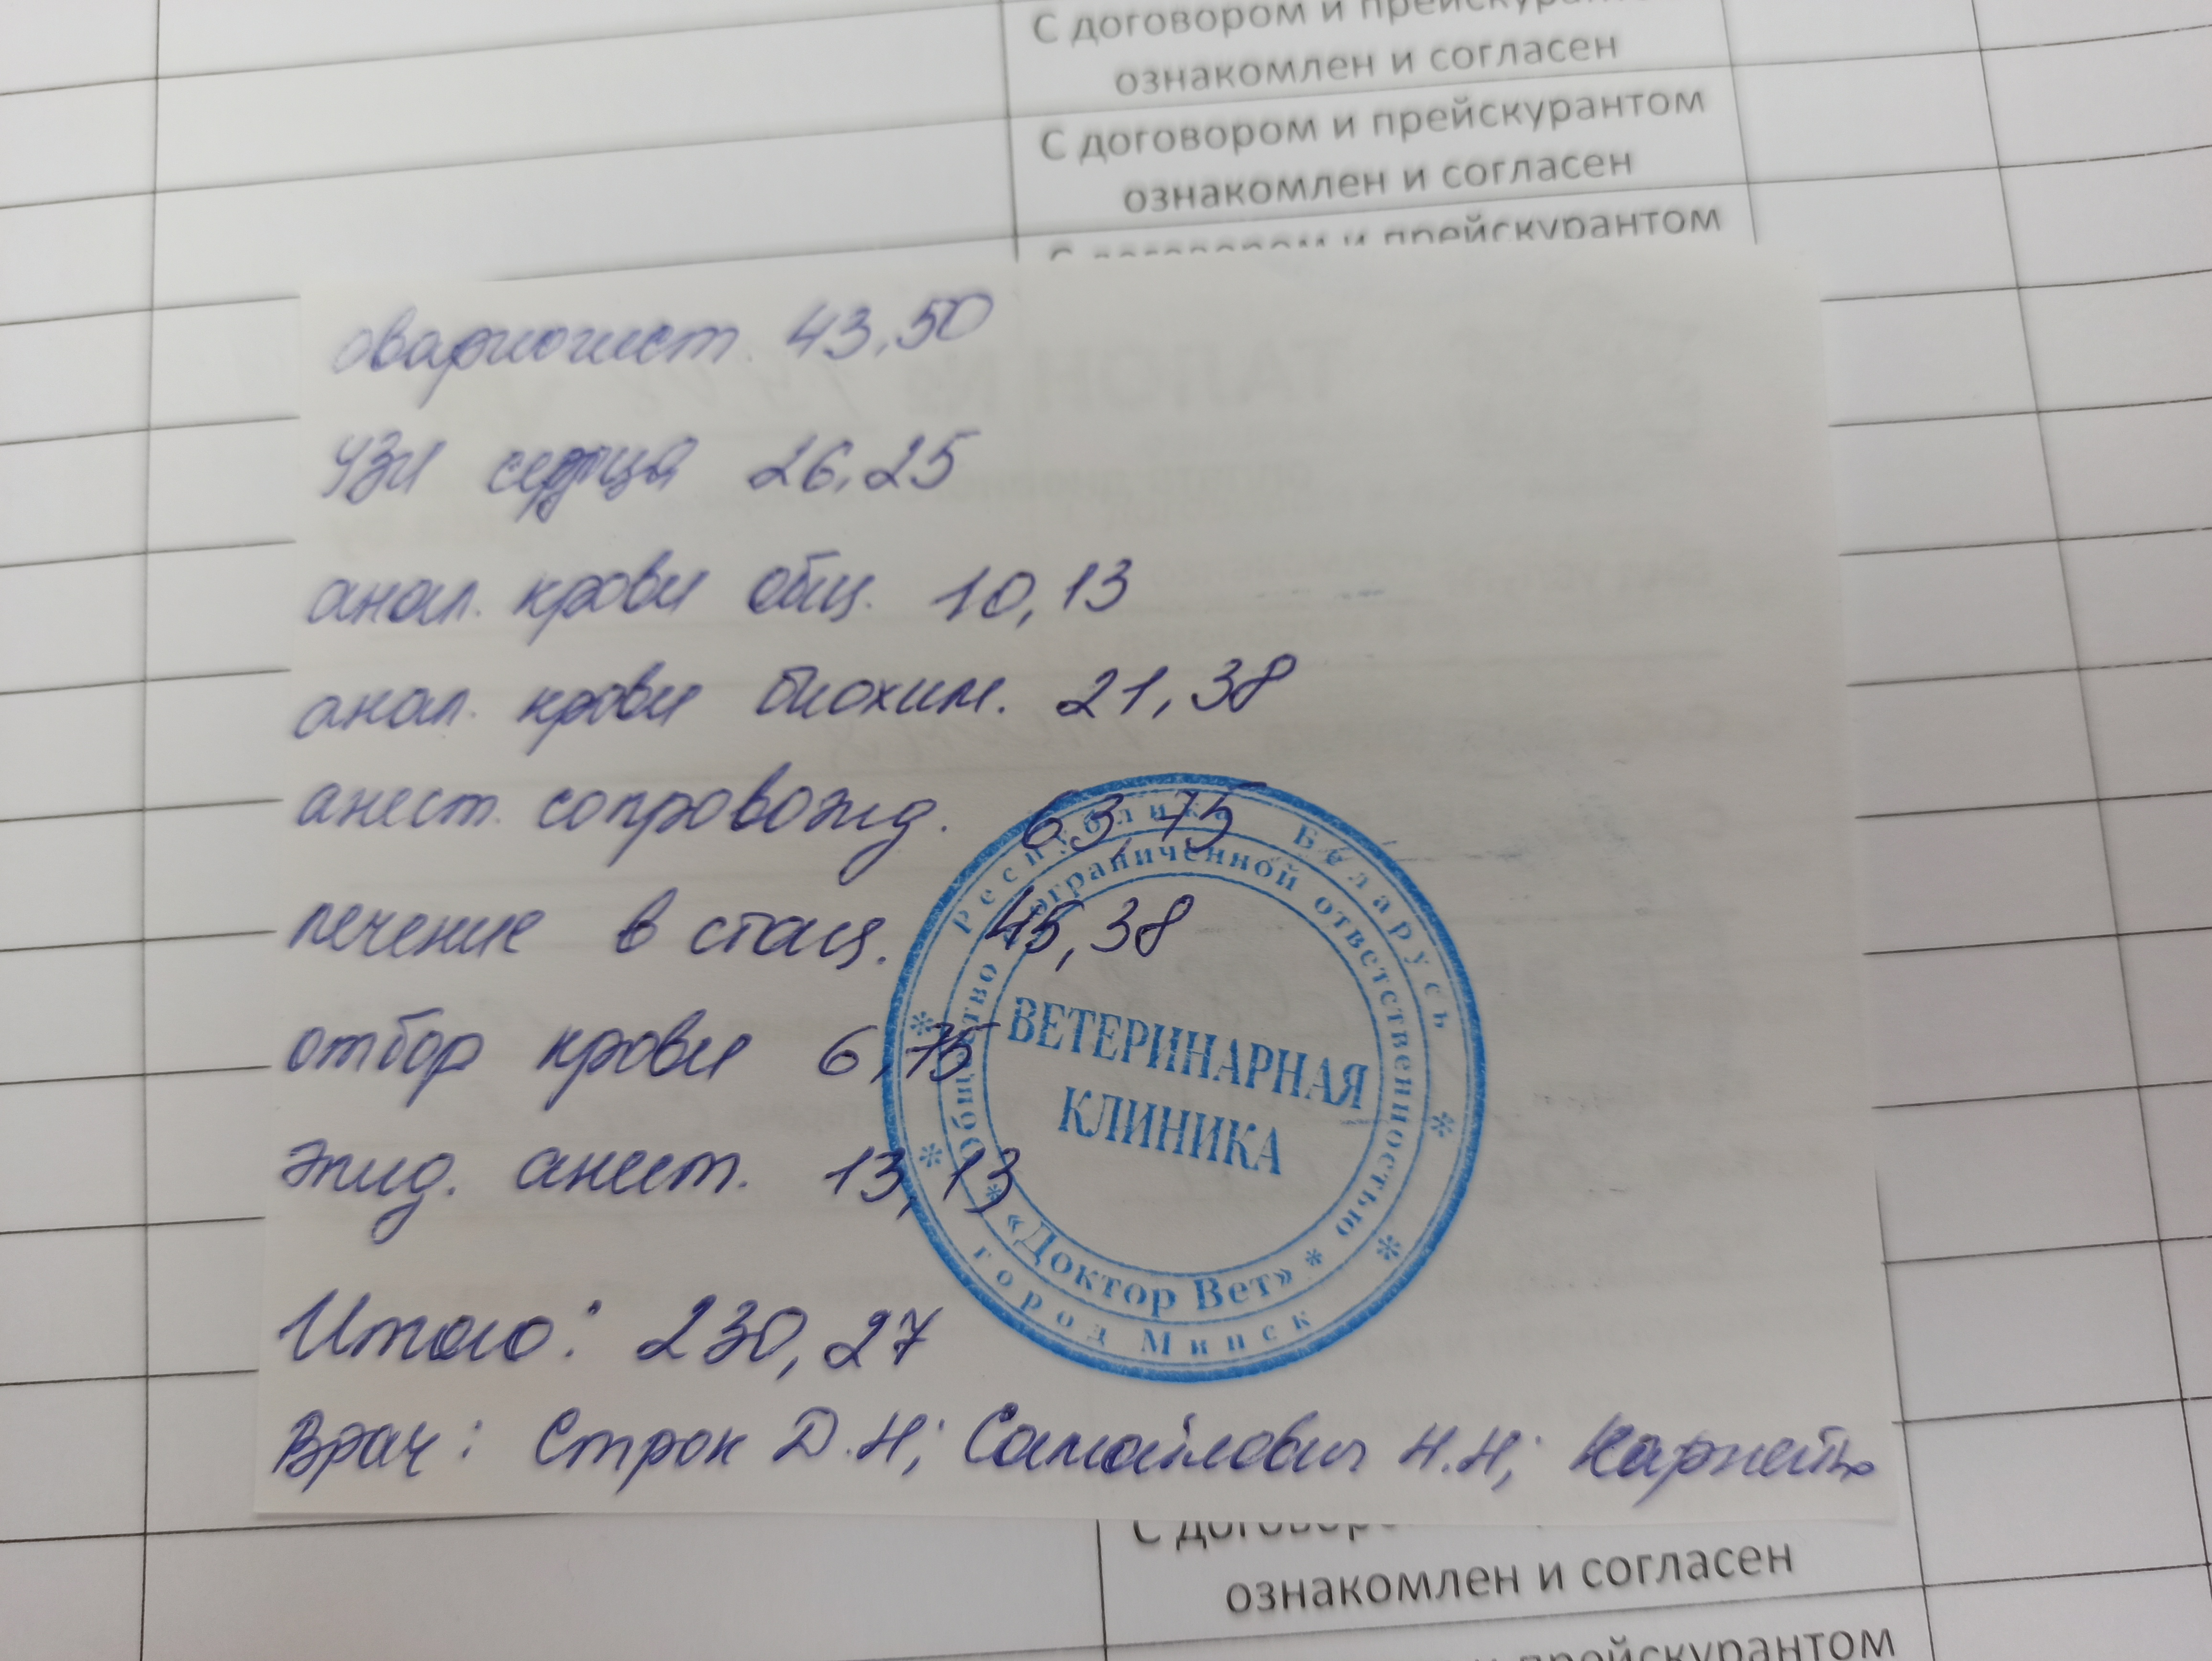 С договором и прейскурантом
ознакомлен и согласен
С договором и прейскурантом
ознакомлен и согласен
С договором и прейскурантом
овариогист. 43,50
УЗИ сердца 26,25
анал. крови общ. 10,13
анал. крови биохим. 21,38
анест. сопровожд. 63,75
лечение в стац. 45,38
отбор крови 6,75
эпид. анест. 13,13
Итого: 230,27
Врач: Строк Д.Н; Самойлович Н.Н;
Республика Беларусь
Общество с ограниченной ответственностью
ВЕТЕРИНАРНАЯ
КЛИНИКА
«Доктор Вет»
город Минск
ТАЛОН №
ознакомлен и согласен
прейскурантом